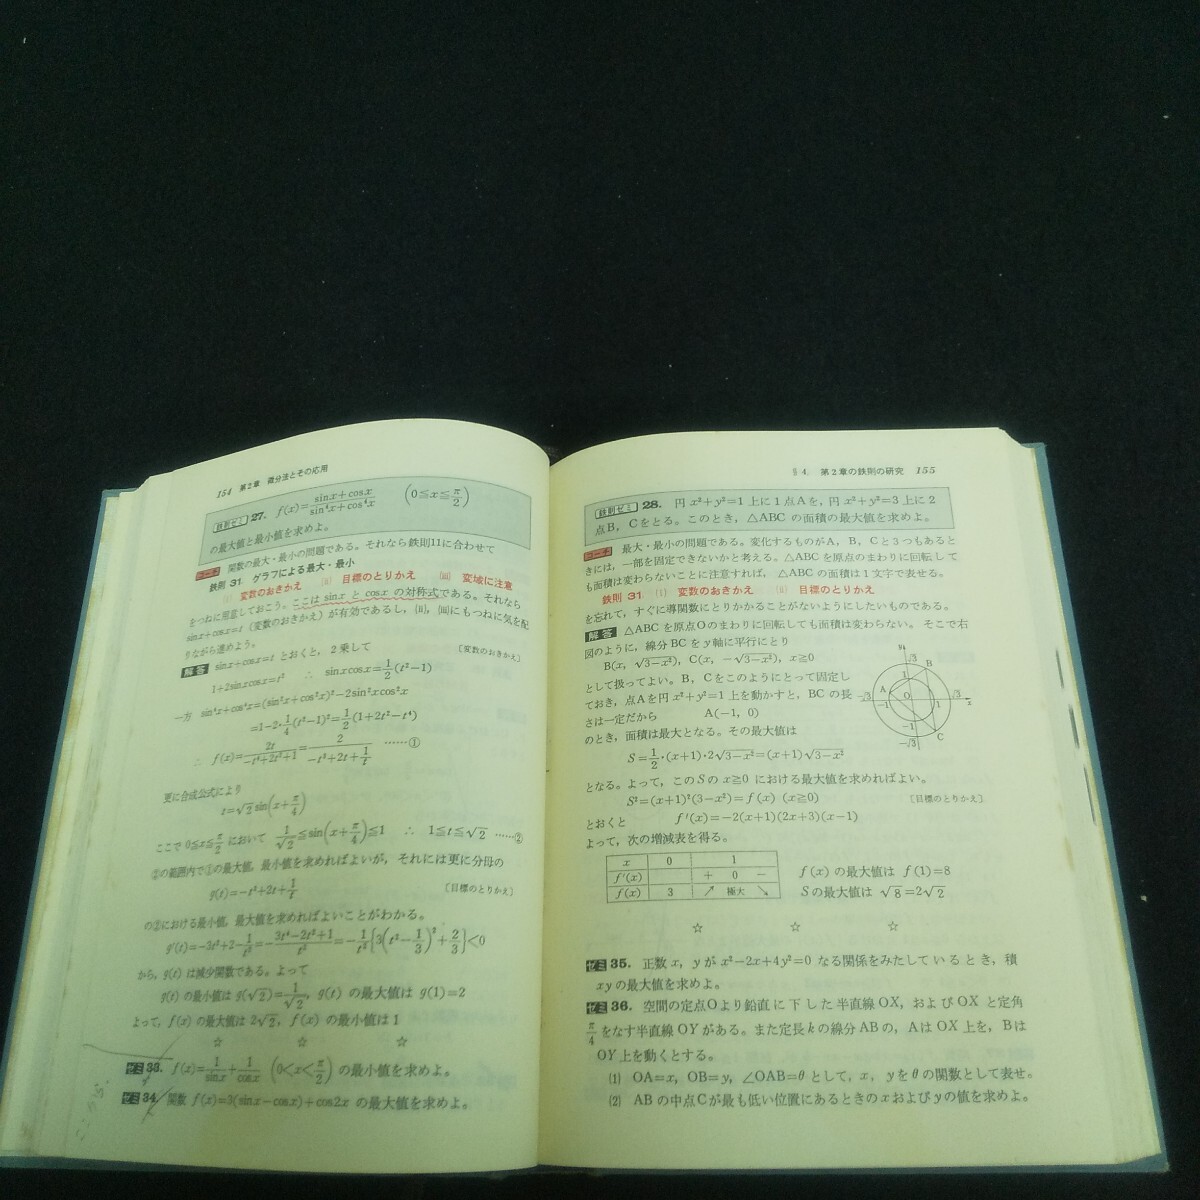 154 第2章 微分法とその応用
鉄則ゼミ 27. f(x)=(sinx+cosx)/(sin⁴x+cos⁴x) (0≦x≦π/2)
の最大値と最小値を求めよ。
コーチ 関数の最大・最小の問題である。それなら鉄則11に合わせて
鉄則 31 グラフによる最大・最小
(i) 変数のおきかえ (ii) 目標のとりかえ (iii) 変域に注意
をつねに用意しておこう。ここは sinx と cosx の対称式である。それなら
sinx+cosx=t (変数のおきかえ) が有効であるし，(ii)，(iii)にもつねに気を配
りながら進めよう。
解答 sinx+cosx=t とおくと，2乗して 〔変数のおきかえ〕
1+2sinxcosx=t² ∴ sinxcosx=1/2(t²−1)
一方 sin⁴x+cos⁴x=(sin²x+cos²x)²−2sin²xcos²x
=1−2・1/4(t²−1)²=1/2(1+2t²−t⁴)
∴ f(x)=2t/(−t⁴+2t²+1)=2/(−t³+2t+1/t) ……①
更に合成公式により
t=√2sin(x+π/4)
ここで 0≦x≦π/2 において 1/√2≦sin(x+π/4)≦1 ∴ 1≦t≦√2 ……②
②の範囲内で①の最大値，最小値を求めればよいが，それには更に分母の
g(t)=−t³+2t+1/t 〔目標のとりかえ〕
の②における最小値，最大値を求めればよいことがわかる。
g′(t)=−3t²+2−1/t²=−(3t⁴−2t²+1)/t²=−1/t²{3(t²−1/3)²+2/3}<0
から，g(t) は減少関数である。よって
g(t) の最小値は g(√2)=1/√2，g(t) の最大値は g(1)=2
よって，f(x) の最大値は 2√2，f(x) の最小値は 1
☆ ☆ ☆
ゼミ 33. f(x)=1/sinx+1/cosx (0<x<π/2) の最小値を求めよ。
ゼミ 34. 関数 f(x)=3(sinx−cosx)+cos2x の最大値を求めよ。
§4. 第2章の鉄則の研究 155
鉄則ゼミ 28. 円 x²+y²=1 上に1点Aを，円 x²+y²=3 上に2
点B，Cをとる。このとき，△ABC の面積の最大値を求めよ。
コーチ 最大・最小の問題である。変化するものがA，B，Cと3つもあると
きには，一部を固定できないかと考える。△ABCを原点のまわりに回転して
も面積は変わらないことに注意すれば，△ABCの面積は1文字で表せる。
鉄則 31 (i) 変数のおきかえ (ii) 目標のとりかえ
を忘れて，すぐに導関数にとりかかることがないようにしたいものである。
解答 △ABCを原点Oのまわりに回転しても面積は変わらない。そこで右
図のように，線分BCをy軸に平行にとり
B(x, √3−x²)，C(x, −√3−x²)，x≧0
として扱ってよい。B，Cをこのようにとって固定し
ておき，点Aを円 x²+y²=1 上を動かすと，BC の長
さは一定だから A(−1, 0)
のとき，面積は最大となる。その最大値は
S=1/2・(x+1)・2√3−x²=(x+1)√3−x²
となる。よって，このSの x≧0 における最大値を求めればよい。
S²=(x+1)²(3−x²)=f(x) (x≧0) 〔目標のとりかえ〕
とおくと f′(x)=−2(x+1)(2x+3)(x−1)
よって，次の増減表を得る。
x 0 1
f′(x) + 0 −
f(x) 3 ↗ 極大 ↘
f(x) の最大値は f(1)=8
Sの最大値は √8=2√2
y
√3
B
1
A
O
−√3
−1
1
√3
x
−1
−√3
C
☆ ☆ ☆
ゼミ 35. 正数 x，y が x²−2x+4y²=0 なる関係をみたしているとき，積
xy の最大値を求めよ。
ゼミ 36. 空間の定点Oより鉛直に下した半直線OX，およびOXと定角
π/4 をなす半直線OYがある。また定長kの線分ABの，AはOX上を，Bは
OY上を動くとする。
(1) OA=x，OB=y，∠OAB=θ として，x，yをθの関数として表せ。
(2) ABの中点Cが最も低い位置にあるときのxおよびyの値を求めよ。